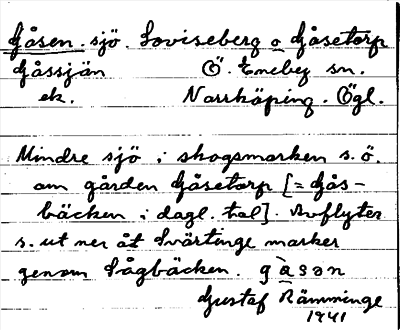 Gåsen. sjö. Loviseberg o Gåsetorp
Gåssjän Ö. Eneby sn.
ek. Norrköping. Ögl.
Mindre sjö i skogsmarken s.ö.
om gården Gåsetorp [= Gås-
bäcken i dagl. tal]. Avflyter
s. ut ner åt Svärtinge marker
genom Sågbäcken. gåsən
Gustaf Rämminge
1941